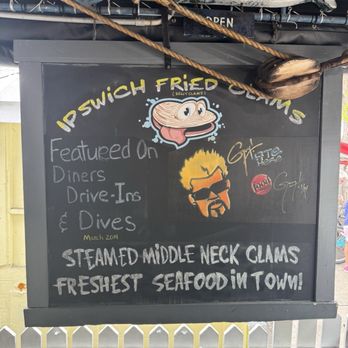 OPEN
IPSWICH FRIED CLAMS
(BELLY CLAMS)
Featured On
Diners
Drive-Ins
& Dives
March 2014
STEAMED MIDDLE NECK CLAMS
FRESHEST SEAFOOD in TOWN!